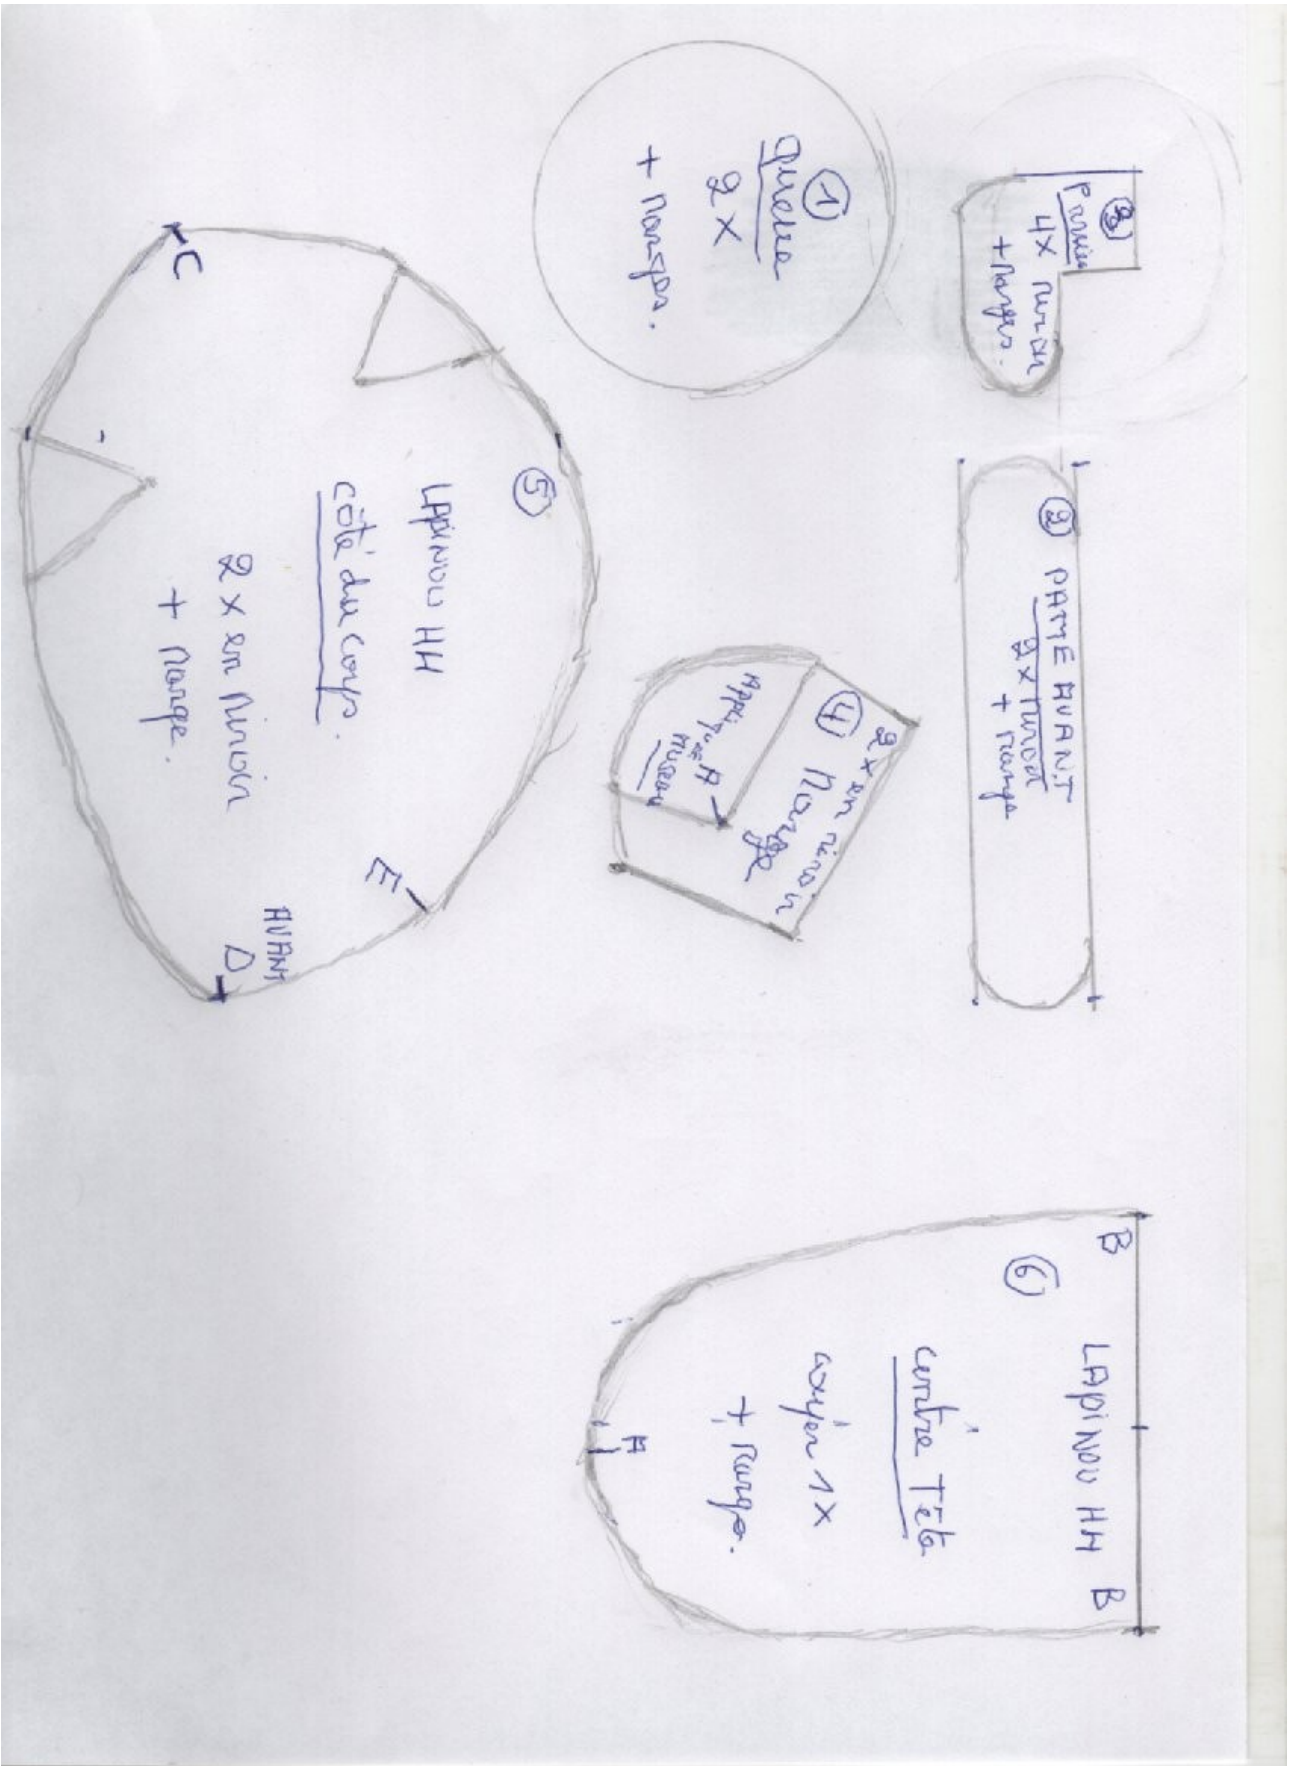 ①
queue
2 X
+ Marges.
③
4X miroir
+ Marges.
② PATTE AVANT
2 x miroir
+ marge
④
2x en miroir
Marge
A
Museau
⑤
LAPINOU HH
Côté du corps.
2 x en miroir
+ Marge.
C
E
AVANT
D
B LAPINOU HH B
⑥
centre Tête
couper 1X
+ Marge.
A